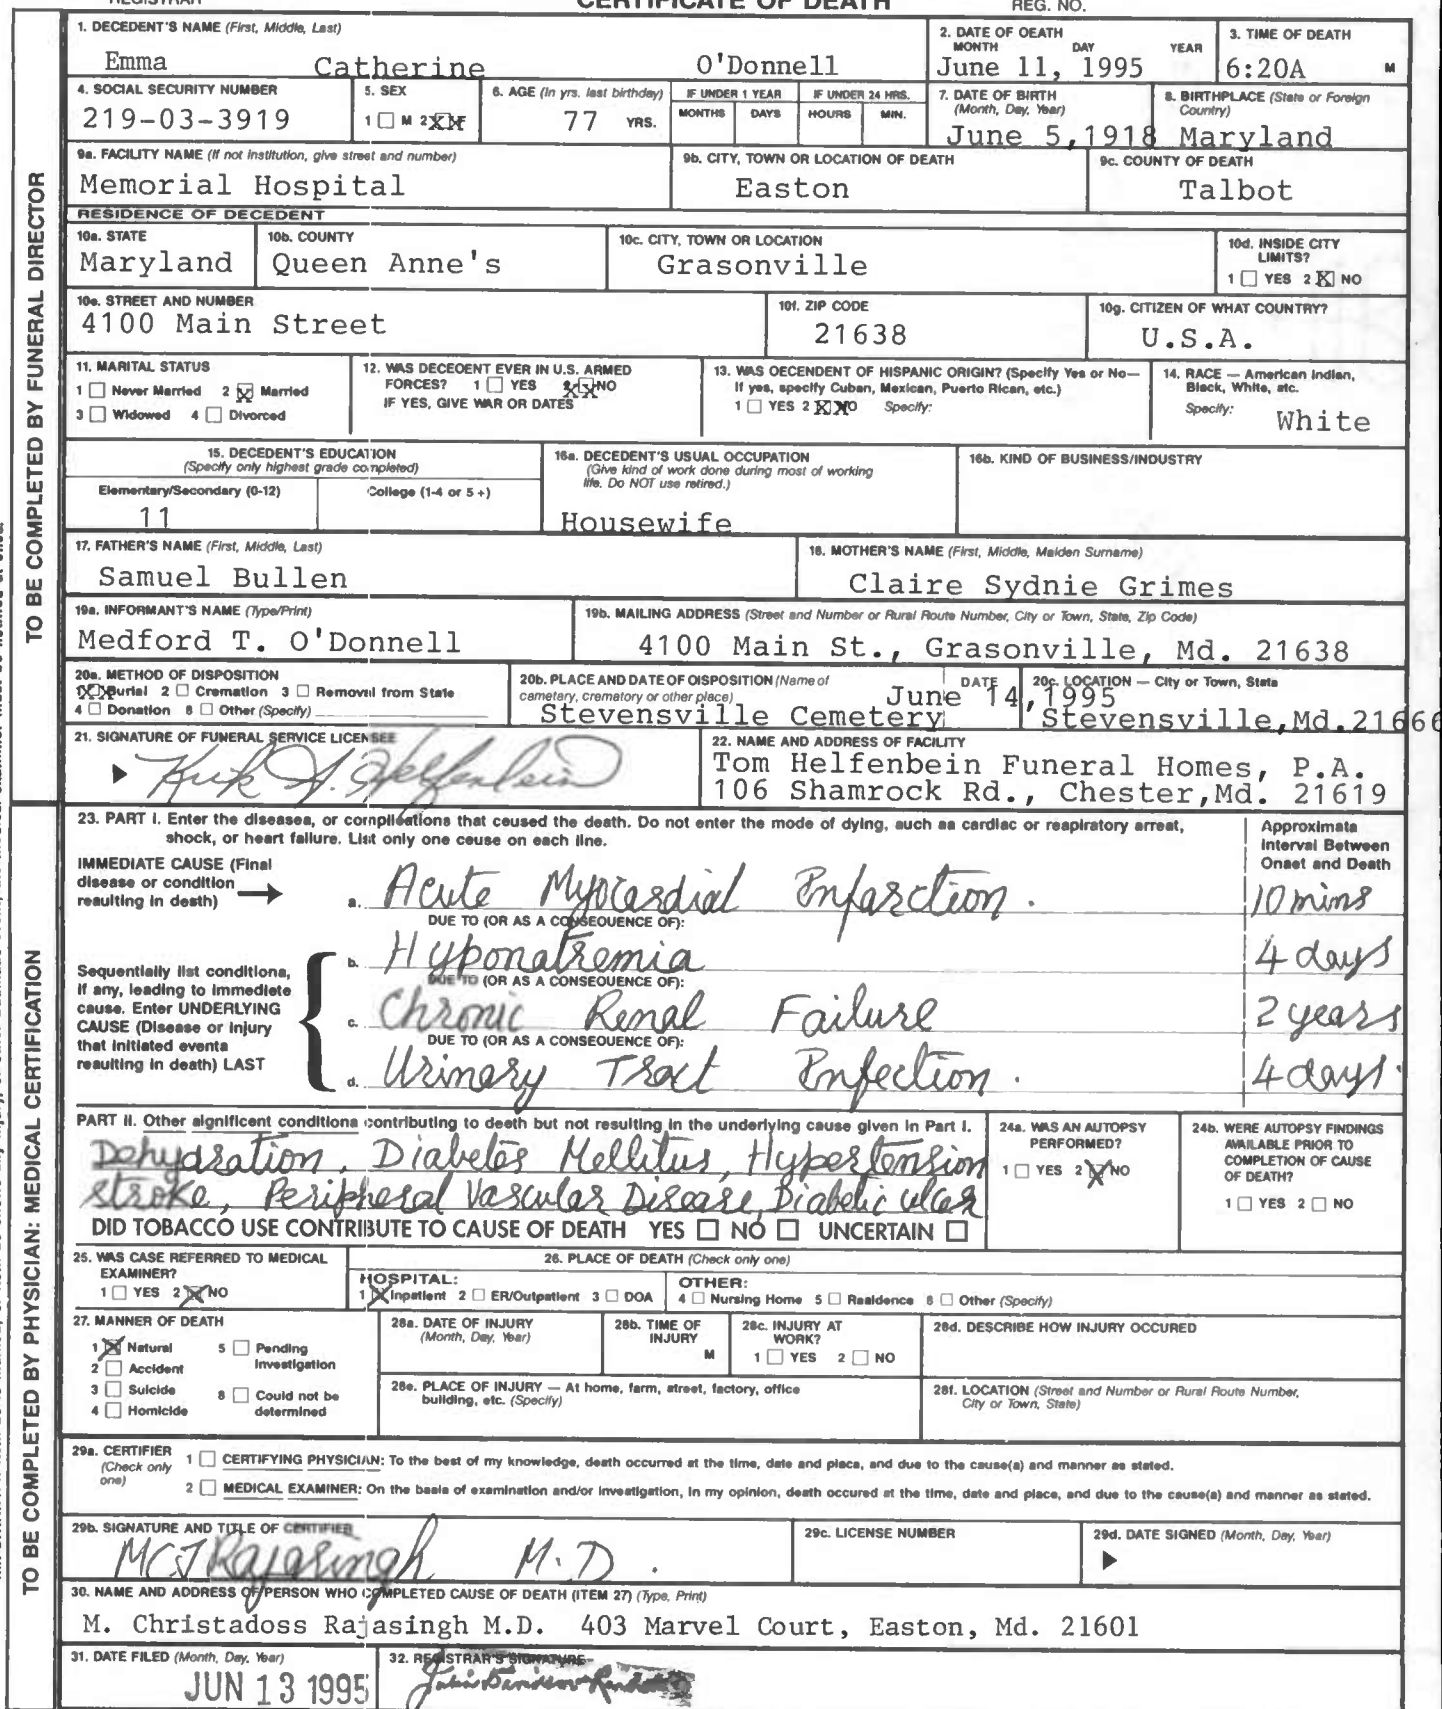 REGISTRAR CERTIFICATE OF DEATH REG. NO.
1. DECEDENT'S NAME (First, Middle, Last)
Emma Catherine O'Donnell
2. DATE OF DEATH
MONTH DAY YEAR
June 11, 1995
3. TIME OF DEATH
6:20A M
4. SOCIAL SECURITY NUMBER
219-03-3919
5. SEX
1 M 2 F
6. AGE (In yrs. last birthday)
77 YRS.
IF UNDER 1 YEAR
MONTHS DAYS
IF UNDER 24 HRS.
HOURS MIN.
7. DATE OF BIRTH
(Month, Day, Year)
June 5,1918
8. BIRTHPLACE (State or Foreign
Country)
Maryland
9a. FACILITY NAME (If not institution, give street and number)
Memorial Hospital
9b. CITY, TOWN OR LOCATION OF DEATH
Easton
9c. COUNTY OF DEATH
Talbot
RESIDENCE OF DECEDENT
10a. STATE
Maryland
10b. COUNTY
Queen Anne's
10c. CITY, TOWN OR LOCATION
Grasonville
10d. INSIDE CITY
LIMITS?
1 YES 2 X NO
10e. STREET AND NUMBER
4100 Main Street
10f. ZIP CODE
21638
10g. CITIZEN OF WHAT COUNTRY?
U.S.A.
11. MARITAL STATUS
1 Never Married 2 X Married
3 Widowed 4 Divorced
12. WAS DECEDENT EVER IN U.S. ARMED
FORCES? 1 YES 2 X NO
IF YES, GIVE WAR OR DATES
13. WAS DECENDENT OF HISPANIC ORIGIN? (Specify Yes or No—
If yes, specify Cuban, Mexican, Puerto Rican, etc.)
1 YES 2 X NO Specify:
14. RACE — American Indian,
Black, White, etc.
Specify:
White
15. DECEDENT'S EDUCATION
(Specify only highest grade completed)
Elementary/Secondary (0-12) College (1-4 or 5+)
11
16a. DECEDENT'S USUAL OCCUPATION
(Give kind of work done during most of working
life. Do NOT use retired.)
Housewife
16b. KIND OF BUSINESS/INDUSTRY
17. FATHER'S NAME (First, Middle, Last)
Samuel Bullen
18. MOTHER'S NAME (First, Middle, Maiden Surname)
Claire Sydnie Grimes
19a. INFORMANT'S NAME (Type/Print)
Medford T. O'Donnell
19b. MAILING ADDRESS (Street and Number or Rural Route Number, City or Town, State, Zip Code)
4100 Main St., Grasonville, Md. 21638
20a. METHOD OF DISPOSITION
1 X Burial 2 Cremation 3 Removal from State
4 Donation 8 Other (Specify)
20b. PLACE AND DATE OF DISPOSITION (Name of
cametary, crematory or other place)
DATE
June 14,1995
Stevensville Cemetery
20c. LOCATION — City or Town, State
Stevensville,Md.21666
21. SIGNATURE OF FUNERAL SERVICE LICENSEE
Kirk Helfenbein
22. NAME AND ADDRESS OF FACILITY
Tom Helfenbein Funeral Homes, P.A.
106 Shamrock Rd., Chester,Md. 21619
TO BE COMPLETED BY FUNERAL DIRECTOR
23. PART I. Enter the diseases, or complications that caused the death. Do not enter the mode of dying, such as cardiac or respiratory arrest,
shock, or heart failure. List only one cause on each line.
Approximate
Interval Between
Onset and Death
IMMEDIATE CAUSE (Final
disease or condition
resulting in death)
a. Acute Myocardial Infarction. 10 mins
DUE TO (OR AS A CONSEQUENCE OF):
b. Hyponatremia 4 days
DUE TO (OR AS A CONSEQUENCE OF):
c. Chronic Renal Failure 2 years
DUE TO (OR AS A CONSEQUENCE OF):
d. Urinary Tract Infection. 4 days.
Sequentially list conditions,
if any, leading to immediate
cause. Enter UNDERLYING
CAUSE (Disease or injury
that initiated events
resulting in death) LAST
PART II. Other significent conditions contributing to death but not resulting in the underlying cause given in Part I.
Dehydration, Diabetes Mellitus, Hypertension
stroke, Peripheral Vascular Disease, Diabetic ulcer
DID TOBACCO USE CONTRIBUTE TO CAUSE OF DEATH YES NO UNCERTAIN
24a. WAS AN AUTOPSY
PERFORMED?
1 YES 2 X NO
24b. WERE AUTOPSY FINDINGS
AVAILABLE PRIOR TO
COMPLETION OF CAUSE
OF DEATH?
1 YES 2 NO
25. WAS CASE REFERRED TO MEDICAL
EXAMINER?
1 YES 2 X NO
26. PLACE OF DEATH (Check only one)
HOSPITAL:
1 X Inpatient 2 ER/Outpatient 3 DOA
OTHER:
4 Nursing Home 5 Residence 6 Other (Specify)
27. MANNER OF DEATH
1 X Natural 5 Pending
Investigation
2 Accident
3 Suicide 8 Could not be
determined
4 Homicide
28a. DATE OF INJURY
(Month, Day, Year)
28b. TIME OF
INJURY
M
28c. INJURY AT
WORK?
1 YES 2 NO
28d. DESCRIBE HOW INJURY OCCURED
28e. PLACE OF INJURY — At home, farm, street, factory, office
building, etc. (Specify)
28f. LOCATION (Street and Number or Rural Route Number,
City or Town, State)
29a. CERTIFIER
(Check only
one)
1 CERTIFYING PHYSICIAN: To the best of my knowledge, death occurred at the time, date and place, and due to the cause(s) and manner as stated.
2 MEDICAL EXAMINER: On the basis of examination and/or investigation, in my opinion, death occured at the time, date and place, and due to the cause(s) and manner as stated.
29b. SIGNATURE AND TITLE OF CERTIFIER
MCJ Rajasingh M.D.
29c. LICENSE NUMBER
29d. DATE SIGNED (Month, Day, Year)
30. NAME AND ADDRESS OF PERSON WHO COMPLETED CAUSE OF DEATH (ITEM 27) (Type, Print)
M. Christadoss Rajasingh M.D. 403 Marvel Court, Easton, Md. 21601
31. DATE FILED (Month, Day, Year)
JUN 13 1995
32. REGISTRAR'S SIGNATURE
TO BE COMPLETED BY PHYSICIAN: MEDICAL CERTIFICATION